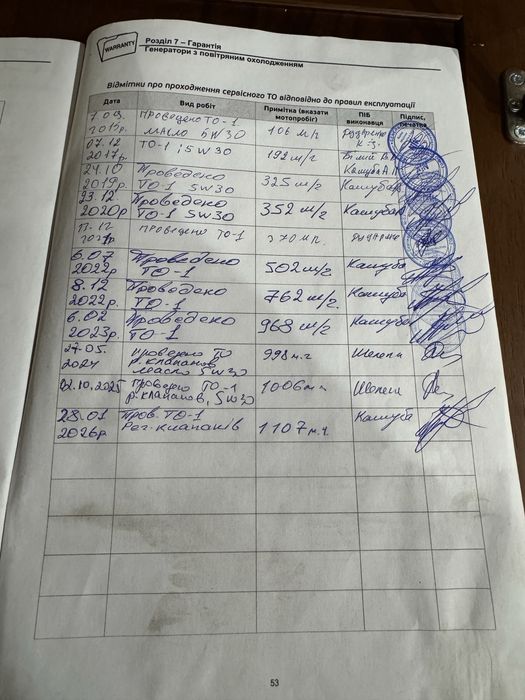 WARRANTY
Розділ 7 – Гарантія
Генератори з повітряним охолодженням
Відмітки про проходження сервісного ТО відповідно до правил експлуатації
Дата Вид робіт Примітка (вказати мотопробіг) ПІБ виконавця Підпис, печатка
Проведено ТО-1 масло 5W30 106 м/г
07.12 2017р. ТО-1; 5W30 192 м/г
24.10 2019р. Проведено ТО-1 5W30 325 м/г Кашуба
23.12 2020р Проведено ТО-1 5W30 352 м/г Кашуба
проведено ТО-1 370 м.г.
6.07 2022р. Проведено ТО-1 502 м/г Кашуба
8.12 2022р. Проведено ТО-1 762 м/г. Кашуба
6.02 2023р. Проведено ТО-1 968 м/г Кашуба
27.05. 2024 проведено ТО р.клапанов масло 5W30 998 м.г Шелепа
02.10.2025 проведено ТО-1 р.клапанов, 5W30 1006 м.г Шелепа
28.01 2026р. Пров. ТО-1 Рег. клапанів 1107 м.г. Кашуба
53